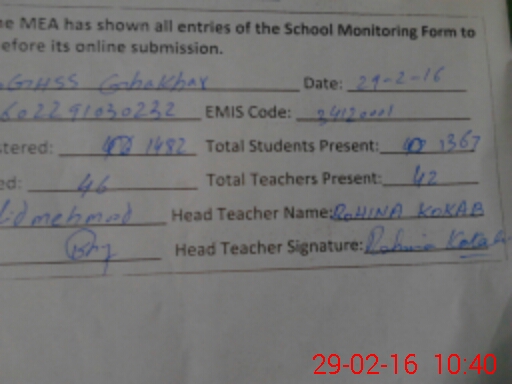 he MEA has shown all entries of the School Monitoring Form to
efore its online submission.
GGHSS Ghakhar Date: 29-2-16
602291030232 EMIS Code: 34120001
stered: 1482 Total Students Present: 1367
ed: 46 Total Teachers Present: 42
lid mehmod Head Teacher Name: ROHINA KOKAB
Head Teacher Signature: Rohina Kokab
29-02-16 10:40